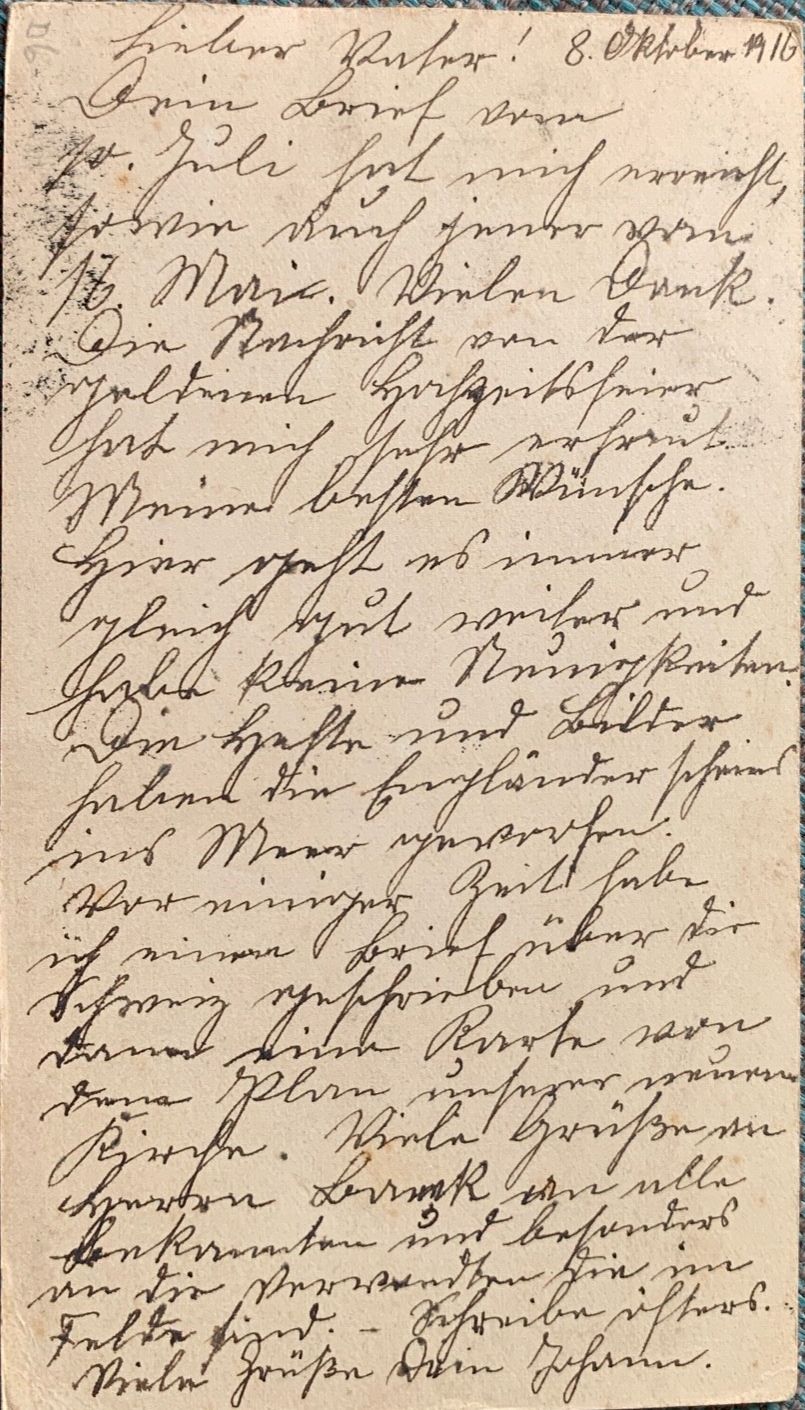 Lieber Vater! 8. Oktober 1916
Dein Brief vom
10. Juli hat mich erreicht,
sowie auch jener vom
16. Mai. Vielen Dank.
Die Nachricht von der
goldenen Hochzeitsfeier
hat mich sehr erfreut.
Meine besten Wünsche.
Hier geht es immer
gleich gut weiter und
habe keine Neuigkeiten.
Die Hefte und Bilder
haben die Engländer scheins
ins Meer geworfen.
Vor einiger Zeit habe
ich einen Brief über die
Schweiz geschrieben und
dann eine Karte von
dem Plan unserer neuen
Kirche. Viele Grüße an
Herrn an alle
Bekannten und besonders
an die Verwandten die im
Felde sind. – Schreibe öfters.
Viele Grüße Dein Johann.